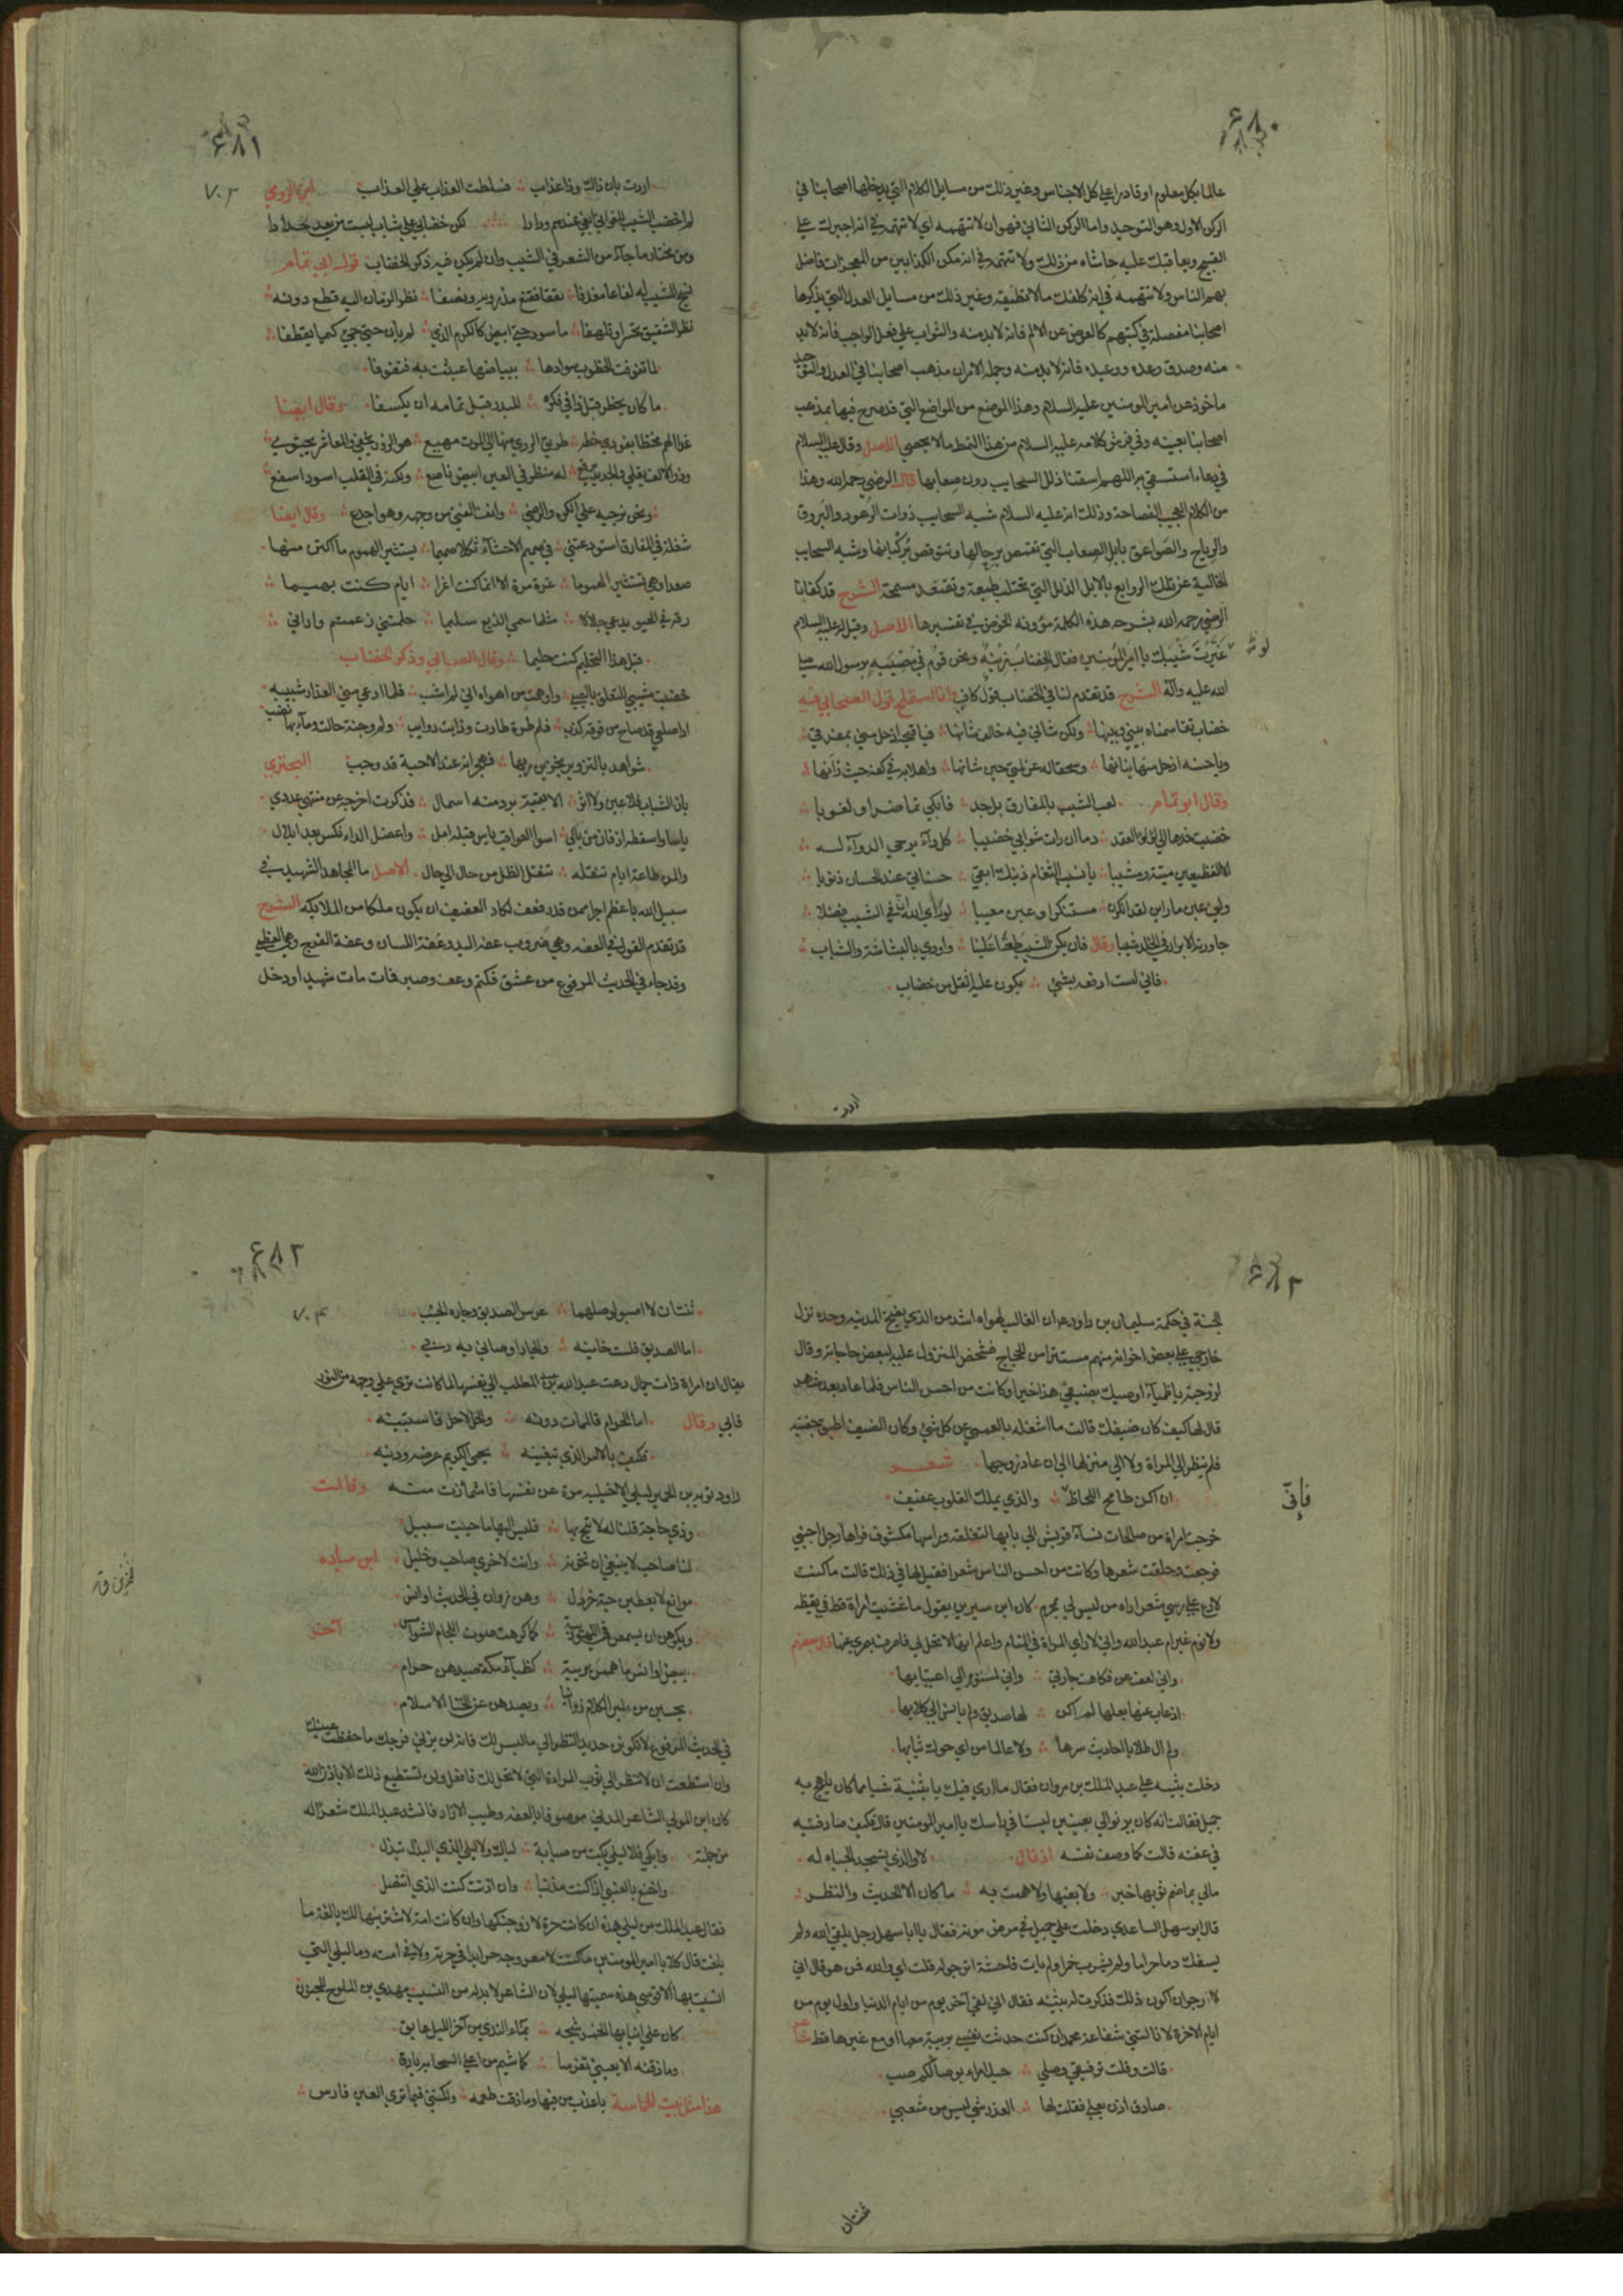 ۶۸۰
عالما بكل معلوم او قادرا على كل الاجناس وغير ذلك من مسايل الكلام التي يدخلها اصحابنا في
الركن الاول وهو التوحيد واما الركن الثاني فهو ان لا تتهمه اي لا تتهمه في انه اجبرك على
القبيح ويعاقبك عليه حاشاه من ذلك ولا تتهمه في انه مكن الكذابين من المعجزات فاضل
بهم الناس ولا تتهمه في انه كلفك ما لا تطيقه وغير ذلك من مسايل العدل التي يذكرها
اصحابنا مفصلة في كتبهم كالعوض عن الالم فانه لا بد منه والثواب على فعل الواجب فانه لا بد
منه وصدق وعده ووعيده فانه لا بد منه وجملة الامر ان مذهب اصحابنا في العدل والتوحيد
ماخوذ عن امير المومنين عليه السلام وهذا الموضع من المواضع التي قد صرح فيها بمذهب
اصحابنا بعينه وفي فرش كلامه عليه السلام من هذا النمط ما لا يحصى الاصل وقال عليه السلام
في دعاء استسقى به اللهم اسقنا ذلل السحايب دون صعابها قال الرضي رحمه الله وهذا
من الكلام العجيب الفصاحة وذلك انه عليه السلام شبه السحايب ذوات الرعود والبروق
والرياح والصواعق بالابل الصعاب التي تقمص برحالها وتتوقص بركبانها وشبه السحاب
الخالية عن تلك الروايع بالابل الذلل التي تحتلب طيعة وتقتعد مسمحة الشرح قد كفانا
الرضي رحمه الله بشرحه هذه الكلمة مؤونة الخوض في تفسيرها الاصل وقيل له عليه السلام
لو غيّرت شيبك يا امير المومنين فقال الخضاب زينة ونحن قوم في مصيبة برسول الله صلى
الله عليه وآله الشرح قد تقدم لنا في الخضاب قول كاف وانا استملح قول الصحابي فيه
خضاب تقاسمناه بيني وبينها ولكن شاني فيه خالف شانها فيا قبحه اذ حل مني بمفرقي
ويا حسنه اذ حل منها بنانها وسحقا له عن لمتي حين شانها واهلا به في كفها حيث زانها
وقال ابو تمام لعب الشيب بالمفارق بل جد فابكى تماضرا ولعوبا
خضبت خدها الى لؤلؤ العقد دما ان رات شواتي خضيبا كل داء يرجى الدواء له
الا الفظيعين ميتة ومشيبا يا نسيب الثغام ذنبك ابقى حسناتي عند الحسان ذنوبا
ولئن عبن ما راين لقد انكرن مستنكرا وعبن معيبا لو رأى الله ان في الشيب فضلا
جاورته الابرار في الخلد شيبا وقال فان يكن المشيب طغا علينا واودى بالبشاشة والشباب
فاني لست ادفعه بشيئ يكون عليه اثقل من خضاب
اردت
۶۸۱
۷۰۳
اردت بان ذاك وذا عذاب فسلطت العذاب على العذاب ابن الرومي
لم اخضب الشيب للغواني ابغي عندهم ودادا لكن خضابي على شبابي لبست من بعد حدادا
ومن مختار ما جآء من الشعر في الشيب وان لم يكن فيه ذكر الخضاب قول ابي تمام
نسج المشيب له لفاعا مغدفا يققا فقنع مذرويه ونصفا نظر الزمان اليه قطع دونه
نظر الشفيق تحسرا وتلهفا ما اسود حتى ابيض كالكرم الذي لم يان حتى جيئ كيما يقطفا
لما تفوفت الخطوب سوادها ببياضها عبثت به فتفوفا
ما كان يخطر قبل ذا في فكره للبدر قبل تمامه ان يكسفا وقال ايضا
غدا الهم مختطا بفودي خطة طريق الردى منها الى الموت مهيع هو الزور يجفى والمعاشر يجتوى
وذو الالف يقلى والجديد يرقع له منظر في العين ابيض ناصع ولكنه في القلب اسود اسفع
ونحن نرجيه على الكره والرضى وانف الفتى من وجهه وهو اجدع وقال ايضا
شعلة في المفارق استودعتني في صميم الاحشآء ثكلا صميما يستثير الهموم ما اكتن منها
صعدا وهي تستثير الهموما غرة مرة الا انما كنت اغرا ايام كنت بهيما
دقة في الحيوة يدعى جلالا مثلما سمي اللذيع سليما حلمتني زعمتم واراني
قبل هذا التحليم كنت حليما وقال الصابي وذكر الخضاب
شواهد بالتزوير يحوين ربها فهجرانه عند الاحبة قد وجب البحتري
بان الشباب فلا عين ولا اثر الا بقية برد منه اسمال قد كدت اخرجه عن منتهى عددي
ياسا واسقطه اذ فات من بالي اسوا العواقب ياس قبله امل واعضل الداء نكس بعد ابلال
والمرء طاعة ايام تنقله تنقل الظل من حال الى حال الاصل ما المجاهد الشهيد في
سبيل الله باعظم اجرا ممن قدر فعف لكاد العفيف ان يكون ملكا من الملايكة الشرح
قد تقدم القول في العفه وهي ضروب عفة اليد وعفة اللسان وعفة الفرج وهي العظمى
وقد جاء في الحديث المرفوع من عشق فكتم وعف وصبر فمات مات شهيدا ودخل
۶۸۲
الجنة في حكمة سليمان بن داود عم ان الغالب لهواه اشد من الذي يفتح المدينه وحده نزل
خارجي على بعض اخوانه منهم مستترا من الحجاج فشخص المنزول عليه لبعض حاجاته وقال
لزوجته يا ظمياء اوصيك بضيفي هذا خيرا وكانت من احسن الناس فلما عاد بعد شهر
قال لها كيف كان ضيفك قالت ما اشغله بالعمى عن كل شيئ وكان الضيف اطبق جفنيه
فلم ينظر الى المراة ولا الى منزلها الى ان عاد زوجها شعر
ان اكن طامح اللحاظ والذي يملك القلوب عفيف
فإنّي
خرجت امراة من صالحات نسآء قريش الى بابها لتغلقه وراسها مكشوف فراها رجل اجنبي
فرجعت وحلقت شعرها وكانت من احسن الناس شعرا فقيل لها في ذلك قالت ما كنت
لادع على راسي شعرا راه من ليس لي بمحرم كان ابن سيرين يقول ما غشيت امراة قط في يقظة
ولا نوم غير ام عبد الله واني لارى المراة في المنام واعلم انها لا تحل لي فاصرف بصري عنها قال بعضهم
واني لعف عن فكاهة جارتي واني لمشنو الى اغتيابها
اذ غاب عنها بعلها لم اكن لها صديقا ولم يانس الي كلابها
ولم ال طلابا احاديث سرها ولا عالما من اي حوك ثيابها
دخلت بثينه على عبد الملك بن مروان فقال ما ارى فيك يا بثينة شيا مما كان يلهج به
جميل فقالت انه كان يرنو الي بعينين ليستا في راسك يا امير المومنين قال فكيف صادفته
في عفته قالت كما وصف نفسه اذ قال لا والذي تسجد الجباه له
مالي بما ضم ثوبها خبر ولا بفيها ولا هممت به ما كان الا الحديث والنظر
قال ابو سهل الساعدي دخلت على جميل في مرض موته فقال يا ابا سهل رجل يلقى الله ولم
يسفك دما حراما ولم يشرب خمرا ولم يات فاحشة اترجو له قلت اي والله فمن هو قال اني
لارجو ان اكون ذلك فذكرت له بثينه فقال اني لفي آخر يوم من ايام الدنيا واول يوم من
ايام الاخرة لا نالتني شفاعة محمد ان كنت حدثت نفسي بريبة معها او مع غيرها قط شاعر
قالت وقلت ترفقي وصلي حبل امرء بوصالكم صب
صادق اذن بعلي فقلت لها الغدر شيئ ليس من شعبي
ثنتان
۶۸۳
۷۰۴
ثنتان لا اصبو لوصلهما عرس الصديق وجارة الجنب
اما الصديق فلست خائنه والجار اوصاني به ربي
يقال ان امراة ذات جمال دعت عبد الله بن عبد المطلب الى نفسها لما كانت ترى على وجهه من النور
فابى وقال اما الحرام فالممات دونه والحل لا حل فاستبينه
فكيف بالامر الذي تبغينه يحمي الكريم عرضه ودينه
راود توبه بن الحمير ليلى الاخيليه مرة عن نفسها فاشمازت منه وقالت
وذي حاجة قلنا له لا تبح بها فليس اليها ما حييت سبيل
لنا صاحب لا ينبغي ان نخونه وانت لاخرى صاحب وخليل ابن مياده
موانع لا يعطين حبة خردل وهن زوان في الحديث اوانس
ويكرهن ان يسمعن في اللهو ريبة كما كرهت صوت اللجام الشوامس آخر
بيض اوانس ما هممن بريبة كظباء مكة صيدهن حرام
يحسبن من لين الكلام زوانيا ويصدهن عن الخنا الاسلام
في الحديث المرفوع لا تكونن حديد النظر الى ما ليس لك فانه لن يزني فرجك ما حفظت عينيك
وان استطعت ان لا تنظر الى ثوب المراءة التي لا تحل لك فافعل ولن تستطيع ذلك الا باذن الله
كان ابن المولى الشاعر المدني موصوفا بالعفه وطيب الازار فانشد عبد الملك شعرا له
من جملته وابكي فلا ليلى بكت من صبابة لباك ولا ليلى لذي البذل تبذل
واخنع بالعتبى اذا كنت مذنبا وان اذنبت كنت الذي اتنصل
فقال عبد الملك من ليلى هذه ان كانت حرة لازوجنكها وان كانت امة لاشترينها لك بالغة ما
بلغت فقال كلا يا امير المومنين ما كنت لاصعر وجه حر ابدا في حرته ولا في امته وما ليلى التي
انسب بها الا قوسي هذه سميتها ليلى لان الشاعر لا بد له من النسيب مهدي بن الملوح المجنون
كان على انيابها الخمر شجه بماء الندى من آخر الليل عابق
وما ذقته الا بعيني تفرسا كما شيم من اعلى السحابه بارق
هذا مثل بيت الحماسة باعذب من فيها وما ذقت طعمه ولكنني فيما ترى العين فارس